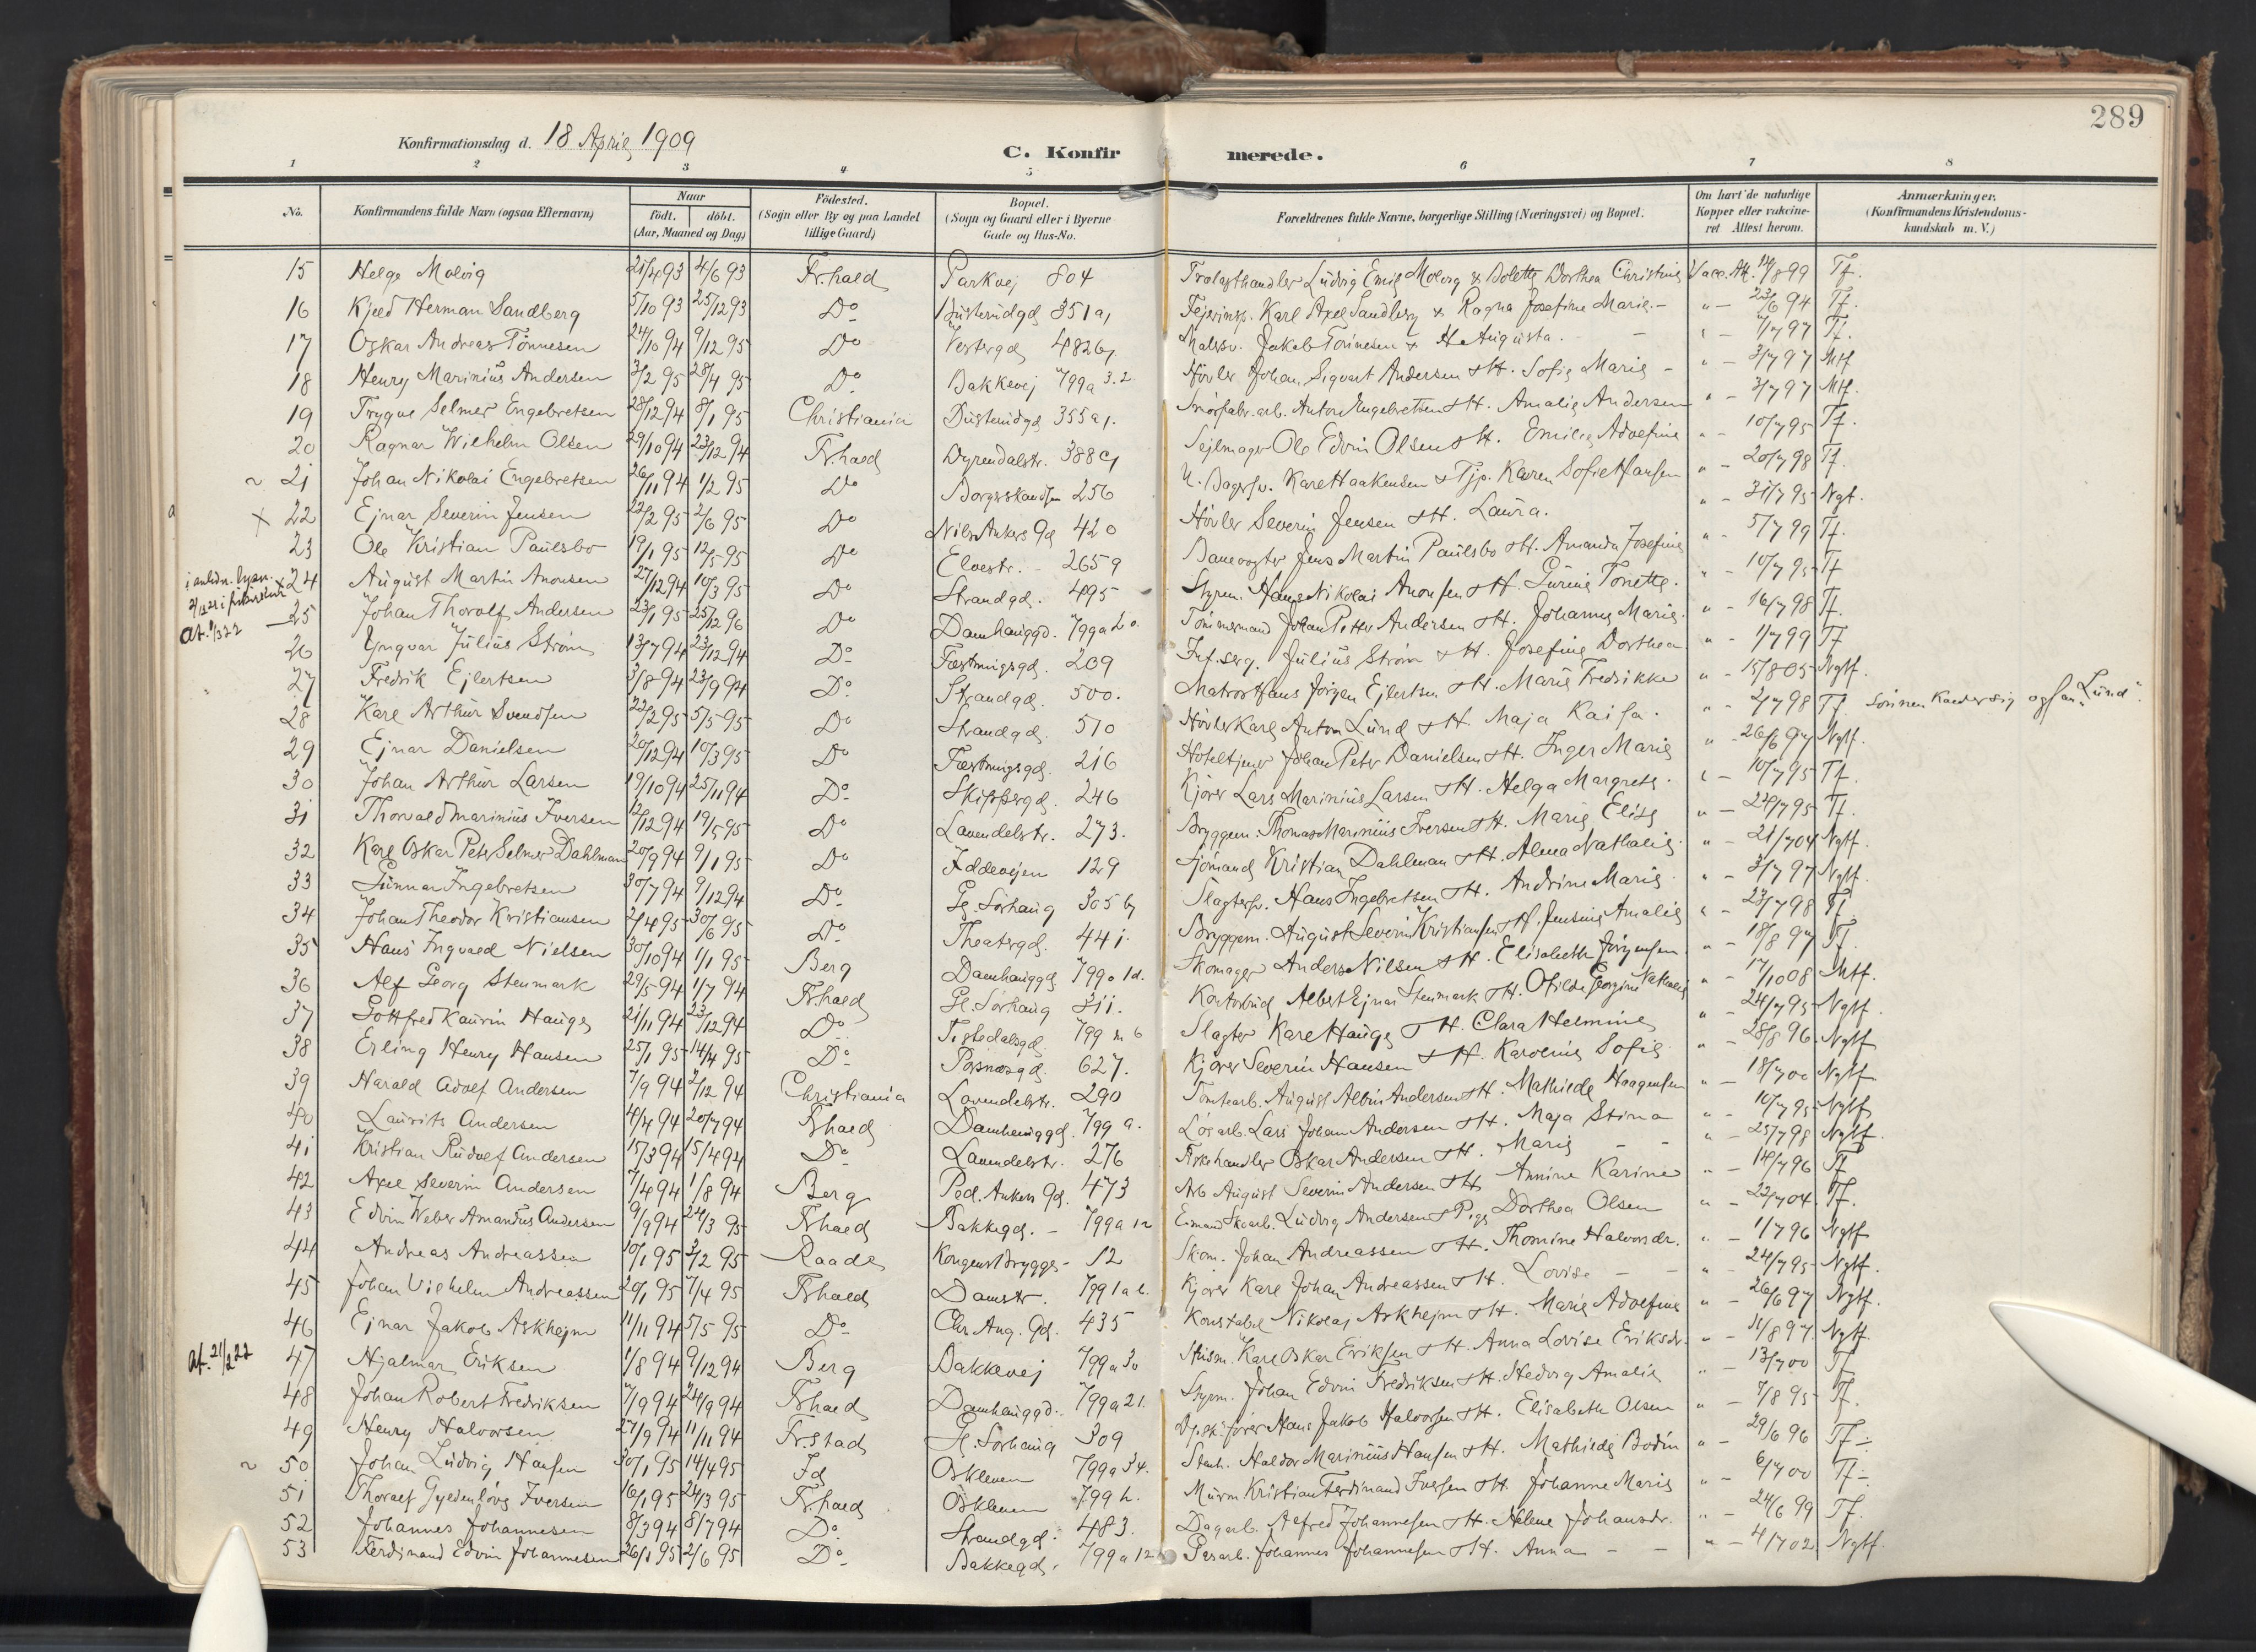 289
Konfirmationsdag d. 18 April 1909
C. Konfir merede.
1 2 3 4 5 6 7 8
No. Konfirmandens fulde Navn (ogsaa Efternavn) Naar født. døbt. (Aar, Maaned og Dag) Fødested. (Sogn eller By og paa Landet tillige Gaard) Bopæl. (Sogn og Gaard eller i Byerne Gade og Hus-No. Forældrenes fulde Navne, borgerlige Stilling (Næringsvei) og Bopæl. Om havt de naturlige Kopper eller vakcineret Attest herom. Anmærkninger. (Konfirmandens Kristendomskundskab m. V.)
15 Helge Molvig 21/4 93 4/6 93 Fr.hald Parkvej 804 Ludvig Emil Molvig & Bolette Dorthea Christine Vacc. Att. 14/8 99 Tf.
16 Kjeld Herman Sandberg 5/10 93 25/12 93 Do 351 a, Karl Axel Sandberg & Ragna Josefine Marie - " - 23/6 94 Tf.
17 Oskar Andreas Tønnesen 24/10 94 9/12 95 Do Vestergd 482 b, Jakob Tønnesen & H. Augusta. - 7/7 97 Tf.
18 Henry Marinius Andersen 3/2 95 28/4 95 Do Bakkevej 799 a 3.2. Høvler Johan Sigvart Andersen & H. Sofie Marie - " - 3/7 97 Mtf
19 Trygve Selmer Engebretsen 28/12 94 8/1 95 Christiania 355 a 1. Anton Engebretsen & H. Amalie Andersen " - 3/7 97 Mtf.
20 Ragnar Wilhelm Olsen 29/10 94 23/12 94 Fr.hald Dyrendalstr. 388 c, Sejlmager Ole Edvin Olsen & H. Emilie Adolfine " - 10/7 95 Tf.
21 Johan Nikolai Engebretsen 26/11 94 1/2 95 Do 256 Karl Haakensen & Tjp. Karen Sofie Hansen " - 20/7 98 Tf.
22 Ejnar Severin Jensen 22/2 95 2/6 95 Do Nils Ankers Gd 420 Høvler Severin Jensen & H. Laura. " - 31/7 95 Ngt.
23 Ole Kristian Paulsbo 19/1 95 12/5 95 Do Elvestr. - 265 a Banevogter Jens Martin Paulsbo & H. Amanda Josefine " - 5/7 99 Tf.
24 August Martin Anonsen 27/12 94 10/3 95 Do Strandgd. 495 Styrm. Hans Nikolai Anonsen & H. Gurine Tonette. " - 10/7 95 Tf
25 Johan Thorolf Andersen 23/1 95 25/12 96 Do Damhauggd. 799 a 20. Tømmermand Johan Petter Andersen & H. Johanne Marie. " - 16/7 98 Tf.
at. 1/3 22
26 Yngvar Julius Strøm 13/7 94 23/12 94 Do Fæstningsgd. 209 Inf. serg. Julius Strøm & H. Josefine Dorthea " - 1/7 99 Tf
27 Fredrik Ejlertsen 3/8 94 23/9 94 Do Strandgd. 500. Matros Hans Jørgen Ejlertsen & H. Marie Fredrikke " - 15/8 05 Ngtf.
28 Karl Arthur Svendsen 22/2 95 5/5 95 Do Strandgd. 510 Høvler Karl Anton Lund & H. Maja Kaisa. " - 2/7 98 Tf Sønnen kalder sig ogsaa „Lund".
29 Ejnar Danielsen 20/12 94 10/3 95 Do Fæstningsgd. 216 Hoteltjener Johan Peter Danielsen & H. Inger Marie " - 26/6 97 Ngtf.
30 Johan Arthur Larsen 19/10 94 25/11 94 Do Skippergd. 246 Kjører Lars Marinius Larsen & H. Helga Margrete. " - 10/7 95 Tf.
31 Thorvald Marinius Iversen 12/12 94 19/5 95 Do Lavendelstr. 273. Bryggem. Thomas Marinius Iversen & H. Marie Elise " - 24/7 95 Tf.
32 Karl Oskar Peter Selmer Dahlman 20/9 94 9/1 95 Do Iddevejen 129 Sjømand Kristian Dahlman & H. Alma Nathalie. " - 21/7 04 Ngtf.
33 Gunnar Ingebretsen 30/7 94 9/12 94 Do Gl. Sørhaug 305 b, Slagtersv. Hans Ingebretsen & H. Andrine Marie. " - 3/7 97 Ngtf.
34 Johan Theodor Kristiansen 2/4 95 30/6 95 Do Theatergd. 441. Bryggem. August Severin Kristiansen & H. Jensine Amalie " - 23/7 98 Tf.
35 Hans Ingvald Nielsen 30/10 94 1/1 95 Berg Damhauggd. 799 a 1d. Skomager Anders Nilsen & H. Elisabeth Jørgensen. " - 18/8 97 Tf.
36 Alf Georg Stenmark 29/5 94 1/7 94 Fr.hald Gl. Sørhaug 311. Kontorbud Albert Ejnar Stenmark & H. Otilde Georgine Nathalie " - 17/10 08 Mtf.
37 Gottfred Laurin Hauge 21/11 94 23/12 94 Do Tistedalsgd. 799 m 6 Slagter Karl Hauge & H. Clara Helmine " - 24/7 95 Ngtf.
38 Erling Henry Hansen 25/1 95 14/4 95 Do Posnæsgd. 627. Kjører Severin Hansen & H. Karoline Sofie " - 28/8 96 Ngtf
39 Harald Adolf Andersen 7/9 94 2/12 94 Christiania Lavendelstr. 290 Tomtearb. August Albin Andersen & H. Mathilde Haagensen " - 18/7 00 Ngtf
40 Laurits Andersen 4/4 94 20/7 94 Frhald Damhauggd. 799 a. Løsarb. Lars Johan Andersen & H. Maja Stina " - 10/7 95 Ngtf.
41 Kristian Rudolf Andersen 15/3 94 15/4 94 Do Lavendelstr. 276 Fiskehandler Oskar Andersen & H. Marie - - " - 25/7 98 Ngtf.
42 Axel Severin Andersen 7/4 94 1/8 94 Berg Ped. Ankers Gd. 473 Arb August Severin Andersen & H. Annine Karine " - 14/7 96 Tf
43 Edvin Weber Amandus Andersen 9/9 94 24/3 95 Frhald Bakkegd. - 799 a 12 Ludvig Andersen & Pige Dorthea Olsen " - 22/7 04. Tf.
44 Andreas Andreassen 10/1 95 3/2 95 Raade Kongens Brygge - 12 Skom. Johan Andreassen & H. Thomine Halvorsdr. " - 1/7 96 Ngtf
45 Johan Vilhelm Andreassen 20/1 95 7/4 95 Frhald Damstr. 799 1 a b. Kjører Karl Johan Andreassen & H. Lovise - - " - 24/7 95 Ngtf.
46 Ejnar Jakob Askhejm 11/11 94 5/5 95 Do Chr. Aug. Gd. 435 Konstabel Nikolaj Askhejm & H. Marie Adolfine " - 26/6 97 Ngtf.
at. 21/2 22
47 Hjalmar Eriksen 1/8 94 9/12 94 Berg Bakkevej 799 a 30 Karl Oskar Eriksen & H. Anna Lovise Eriksdr. " - 11/8 97. Ngtf.
48 Johan Robert Fredriksen 7/9 94 24/9 94 Frhald Damhauggd. 799 a 21. Styrm. Johan Edvin Fredriksen & H. Hedvig Amalie " - 13/7 00 Tf
49 Henry Halvorsen 27/9 94 11/11 94 Fr.stad Gl. Sørhaug 309 Hans Jakob Halvorsen & H. Elisabeth Olsen " - 7/8 95 Tf.
50 Johan Ludvig Hansen 30/1 95 14/4 95 Id Oskleven 799 a 34. Stenh. Haldor Marinius Hansen & H. Mathilde Bodin " - 29/6 96 Tf-
51 Thoralf Gyldenløve Iversen 16/1 95 24/3 95 Frhald Oskleven 799 h. Murm Kristian Ferdinand Iversen & H. Johanne Marie " - 6/7 00 Tf-
52 Johannes Johannesen 8/3 94 8/7 94 Do Strandgd. 483. Dagarb. Alfred Johannesen & H. Helene Johansdr. " - 24/6 99 Tf.
53 Ferdinand Edvin Johannesen 26/1 95 2/6 95 Do Bakkegd. 799 a 12 Johannes Johannesen & H. Anna - - " - 4/7 02 Ngtf.